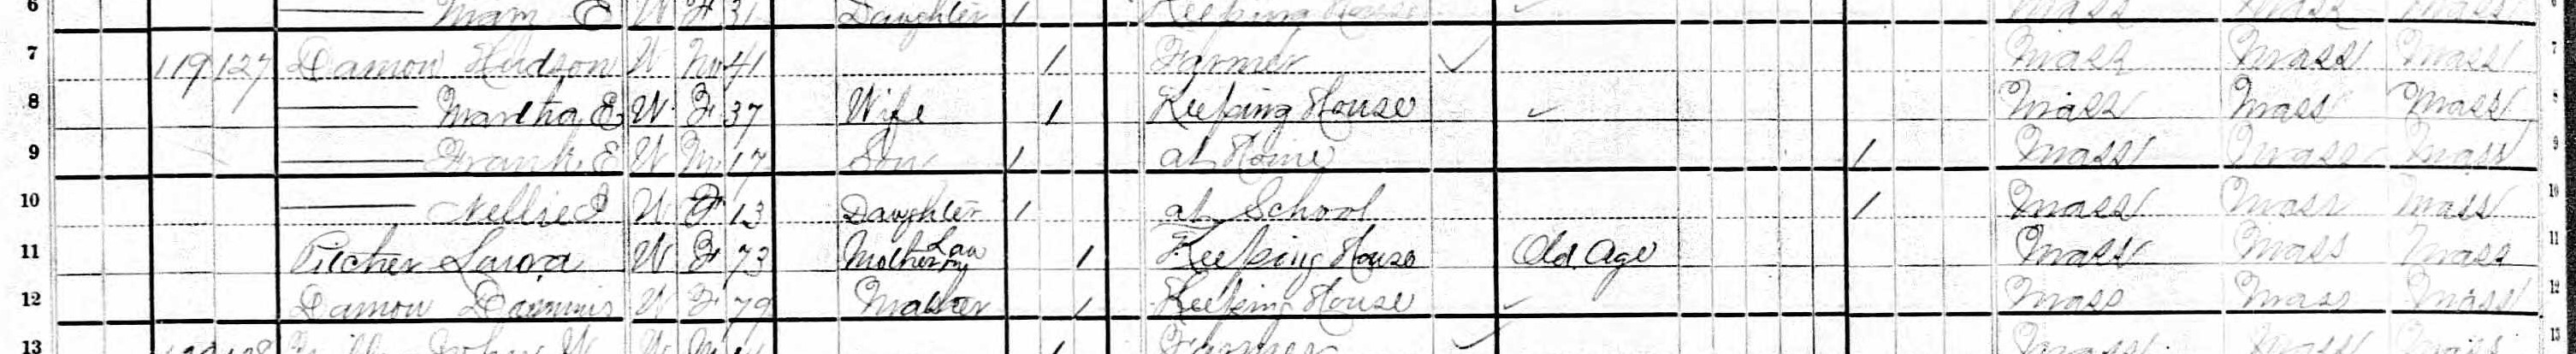 6 —— Mary E W F 31 Daughter 1 Keeping House ✓ Mass Mass Mass 6
7 119 127 Damon Hudson W M 41 1 Farmer ✓ Mass Mass Mass 7
8 —— Martha E W F 37 Wife 1 Keeping House ✓ Mass Mass Mass 8
9 —— Frank E W M 17 Son 1 at Home 1 Mass Mass Mass 9
10 —— Nellie W F 13 Daughter 1 at School 1 Mass Mass Mass 10
11 Pitcher Laura W F 73 Mother in Law 1 Keeping House Old Age Mass Mass Mass 11
12 Damon W F 79 Mother 1 Keeping House ✓ Mass Mass Mass 12
13 John W W M 1 Farmer ✓ Mass Mass Mass 13